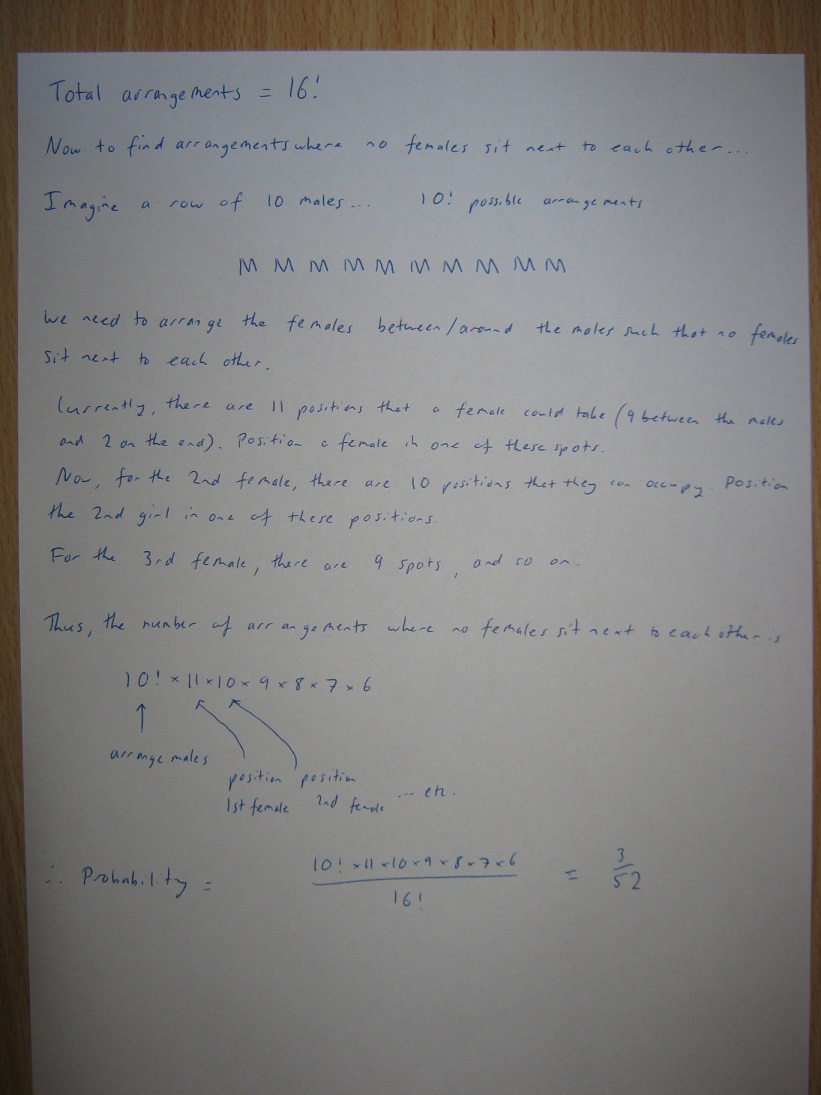 Total arrangements = 16!
Now to find arrangements where no females sit next to each other...
Imagine a row of 10 males... 10! possible arrangements
M M M M M M M M M M
We need to arrange the females between/around the males such that no females
sit next to each other.
Currently, there are 11 positions that a female could take (9 between the males
and 2 on the end). Position a female in one of these spots.
Now, for the 2nd female, there are 10 positions that they can occupy. Position
the 2nd girl in one of these positions.
For the 3rd female, there are 9 spots, and so on.
Thus, the number of arrangements where no females sit next to each other is
10! × 11 × 10 × 9 × 8 × 7 × 6
arrange males
position position
1st female 2nd female ... etc.
∴ Probability = 10! × 11 × 10 × 9 × 8 × 7 × 6 / 16! = 3/52